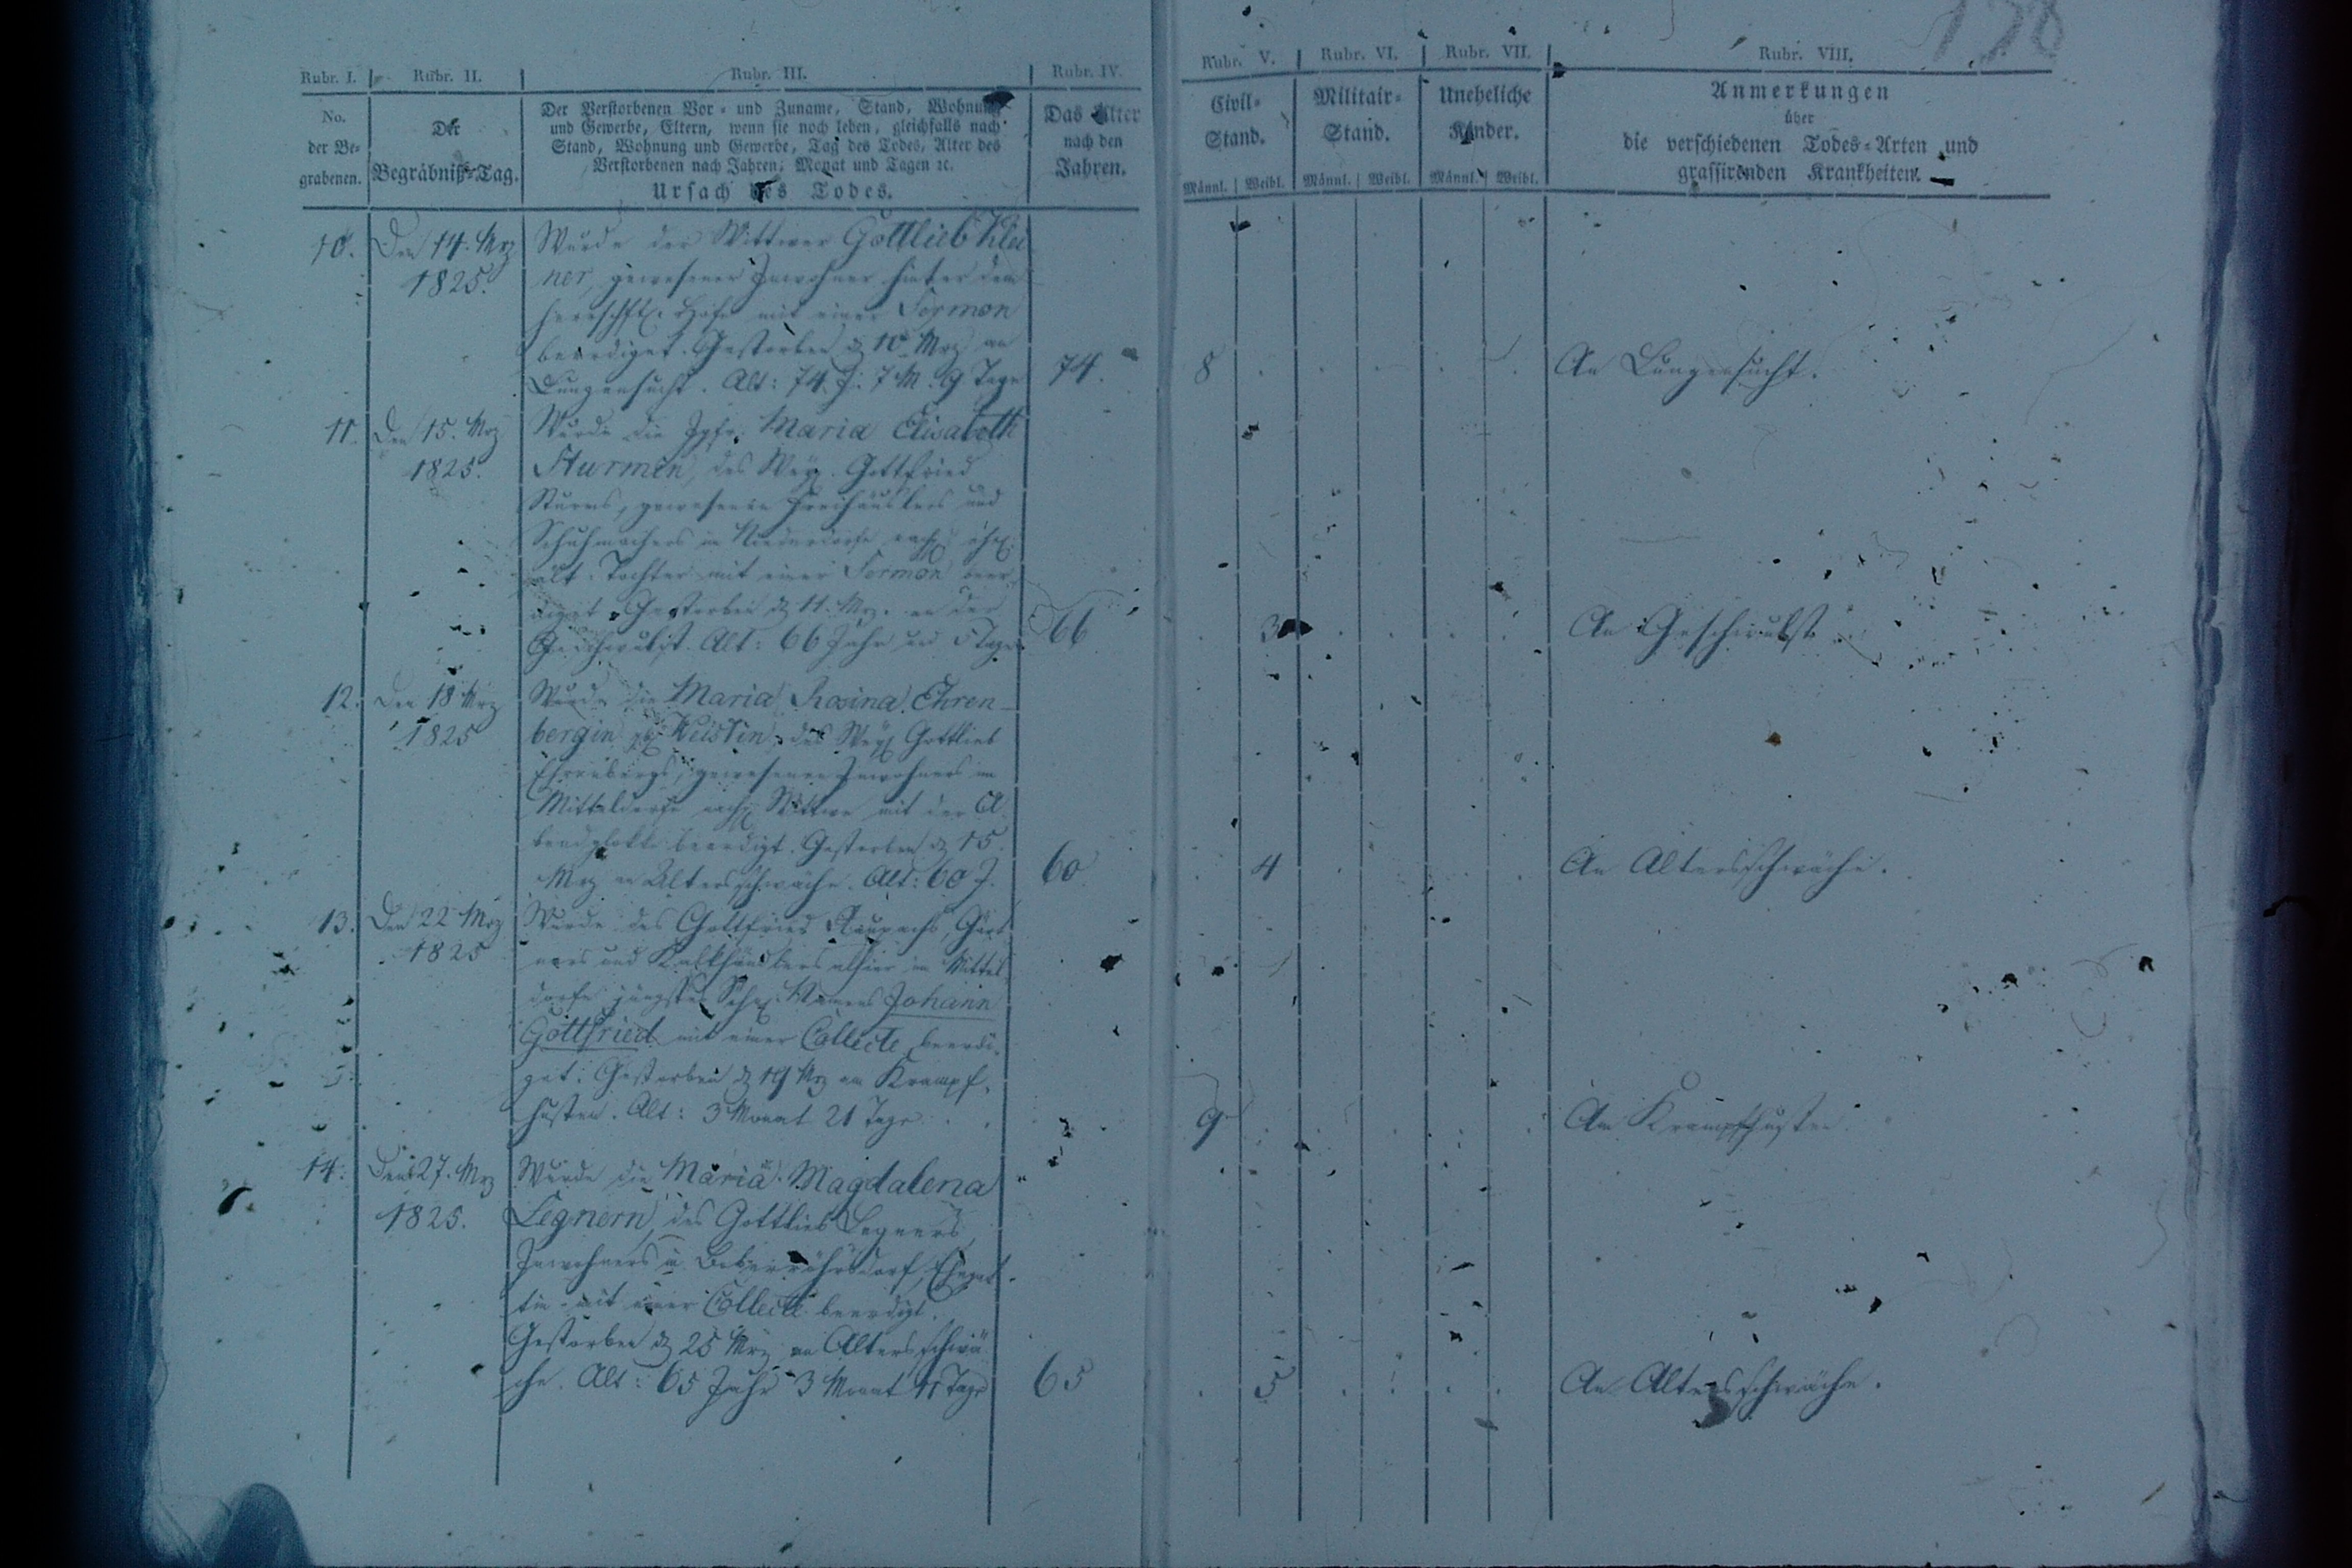 178
Rubr. I. Rubr. II. Rubr. III. Rubr. IV. Rubr. V. Rubr. VI. Rubr. VII. Rubr. VIII.
No.
der Be-
grabenen.
Der
Begräbniß-Tag.
Der Verstorbenen Vor- und Zuname, Stand, Wohnung
und Gewerbe, Eltern, wenn sie noch leben, gleichfalls nach
Stand, Wohnung und Gewerbe, Tag des Todes, Alter des
Verstorbenen nach Jahren, Monat und Tagen ꝛc.
Ursach des Todes.
Das Alter
nach den
Jahren.
Civil-
Stand.
Männl. Weibl.
Militair-
Stand.
Männl. Weibl.
Uneheliche
Kinder.
Männl. Weibl.
Anmerkungen
über
die verschiedenen Todes-Arten und
grassirenden Krankheiten.
10. Den 14. Mrz
1825.
Wurde der Wittwer Gottlieb Klei
ner, gewesener Inwohner hinter dem
herrschftl. Hofe mit einer Sermon
beerdiget. Gestorben d 10 Mrz an
Lungensucht. Alt: 74 J. 7 M. 9 Tage
74. 8 An Lungensucht.
11. Den 15. Mrz
1825.
Wurde die Jgfr. Maria Elisabeth
Sturmin, des Weyl. Gottfried
Sturms, gewesenen Freihäuslers und
Schuhmachers in Niederdorfe nachgl. ehl.
ält. Tochter mit einer Sermon beer-
diget. Gestorben d 11. Mrz. an der
Geschwulst. Alt: 66 Jahr und 5 Tage
66 3 An Geschwulst
12. Den 18 Mrz
1825
Wurde die Maria Rosina Ehren-
bergin, des Weyl. Gottlieb
Ehrenbergs, gewesenen Inwohners im
Mitteldorfe nachgl. Wittwe mit der A
bendglokke beerdigt. Gestorben d 15.
Mrz an Altersschwäche. Alt: 60 J.
60 4 An Altersschwäche.
13. Den 22 Mrz
1825
Wurde des Gottfried Raupachs, Gärt
ners und Kalkhändlers alhier im Mittel
dorfe jüngstes Söhnl. Namens Johann
Gottfried mit einer Collecte beerdi-
get. Gestorben d 19 Mrz am Krampf-
husten. Alt: 3 Monat 21 Tage.
9 Am Krampfhusten.
14. Den 27. Mrz
1825.
Wurde die Maria Magdalena
Legnern, des Gottlieb Legners,
Inwohners in Berbisdorf, Ehegat-
tin mit einer Collecte beerdigt.
Gestorben d 25 Mrz an Altersschwä
che. Alt: 65 Jahr 3 Monat 11 Tage
65 5 An Altersschwäche.